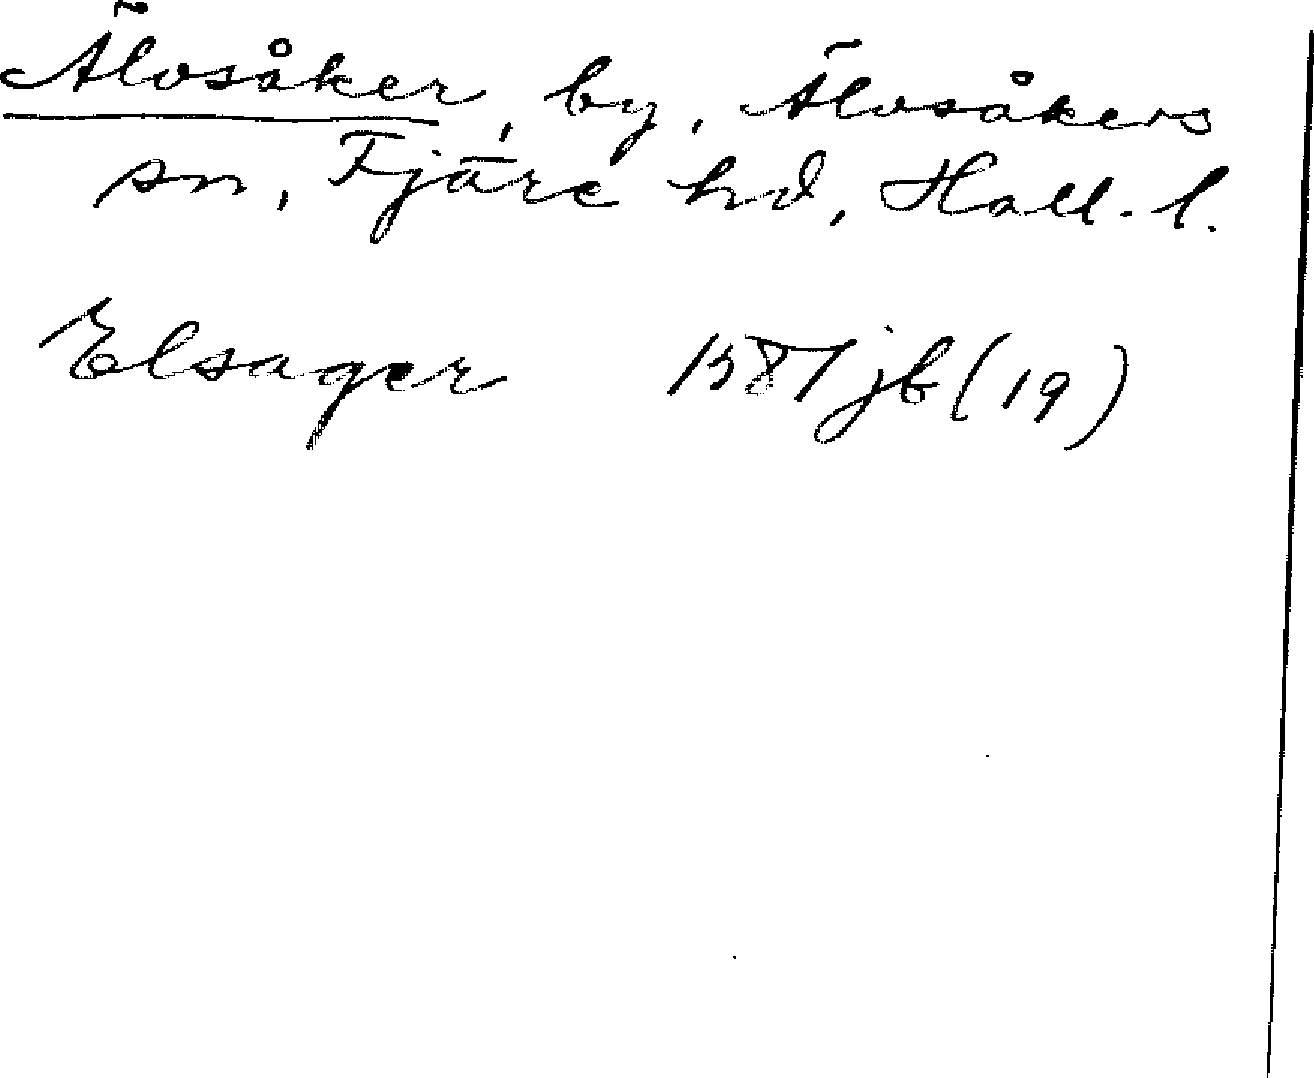 Älvsåker, by, Älvsåkers
sn, Fjäre hd, Hall. l.
Elsager 1587 jb (19)